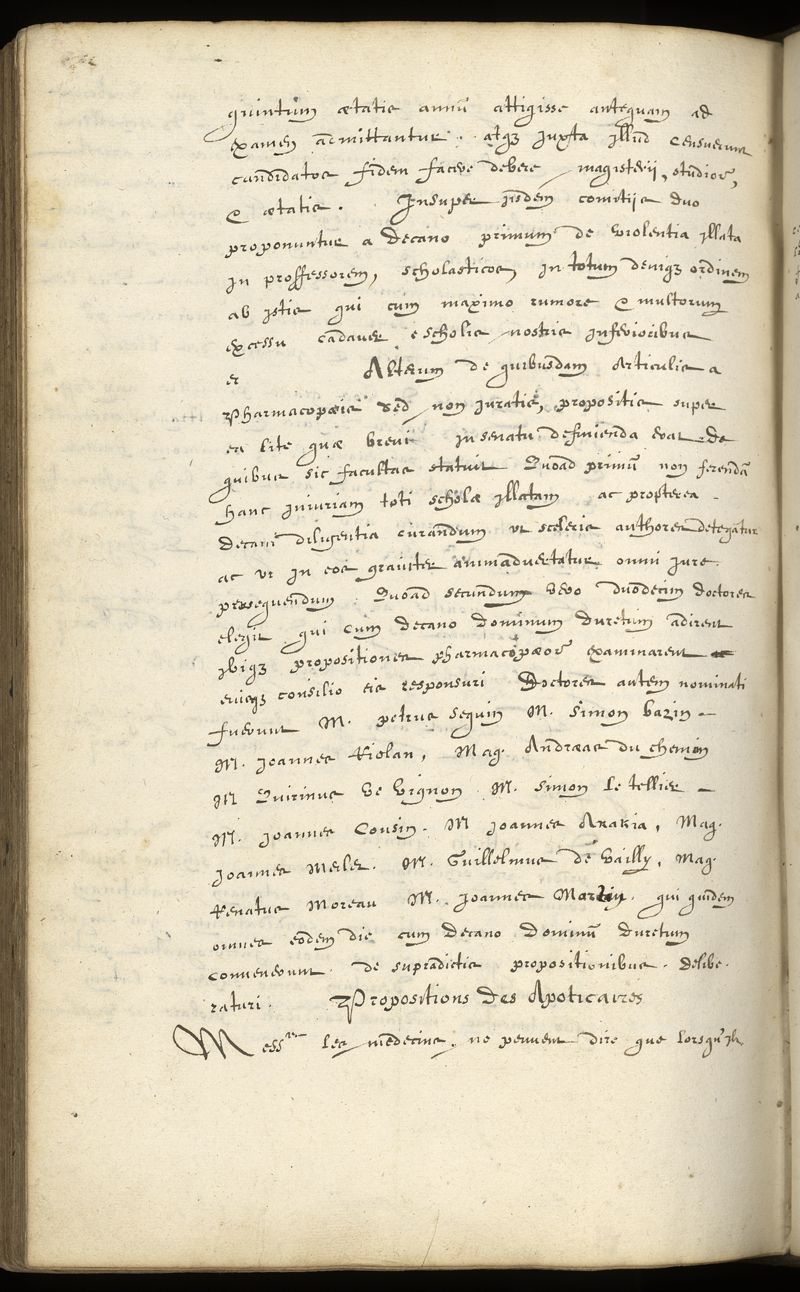 quintum ætatis annū attigisse antequam ad
examen admittantur. atqȝ juxta illud censuerunt
candidatos fidem facere debere magisterii, studior,
& ætatis. Insuper jisdem comitiis duo
proponuntur a decano primum de violentia illata
in proffessorem, scholasticos, in totum deniqȝ ordinem
ab istis qui cum maximo rumore & multorum
excessu cadaver e scholis nostris inferioribus
Alterum de quibusdam Articulis a
Pharmacopæis sed non juratis, propositis super
ea lite quæ brevi in senatu definienda erat de
quibus sic facultas statuit Quoad primū non ferendā
hanc injuriam toti scholæ illatam ac propterea
decani diligentia curandum ut sceleris authores detegātur
ac ut in eos graviter animadvertatur omni jure
prosequendum. Quoad secundum vero duodecim doctores
elegit qui cum decano dominum duretum adirent
ibiqȝ propositiones pharmacopæor examinarent
eiusqȝ consilio eis responsuri Doctores autem nominati
fuerunt M. petrus seguin M. simon bazin
M. Joannes Riolan, Mag. Andræas du chemin
M Quirinus le Vignon. M. simon le tellier
M. Joannes Cousin. M Joannes Akakia, Mag.
Joannes Merlet. M. Guillelmus de Vailly, Mag.
Renatus Moreau M. Joannes Martin. qui quidem
omnes eodem die cum decano dominū duretum
convenerunt de supradictis propositionibus. delibe-
raturi. Propositions des Apoticaires
Mess.rs les medecins, ne peuvent dire que lorsqu'ils